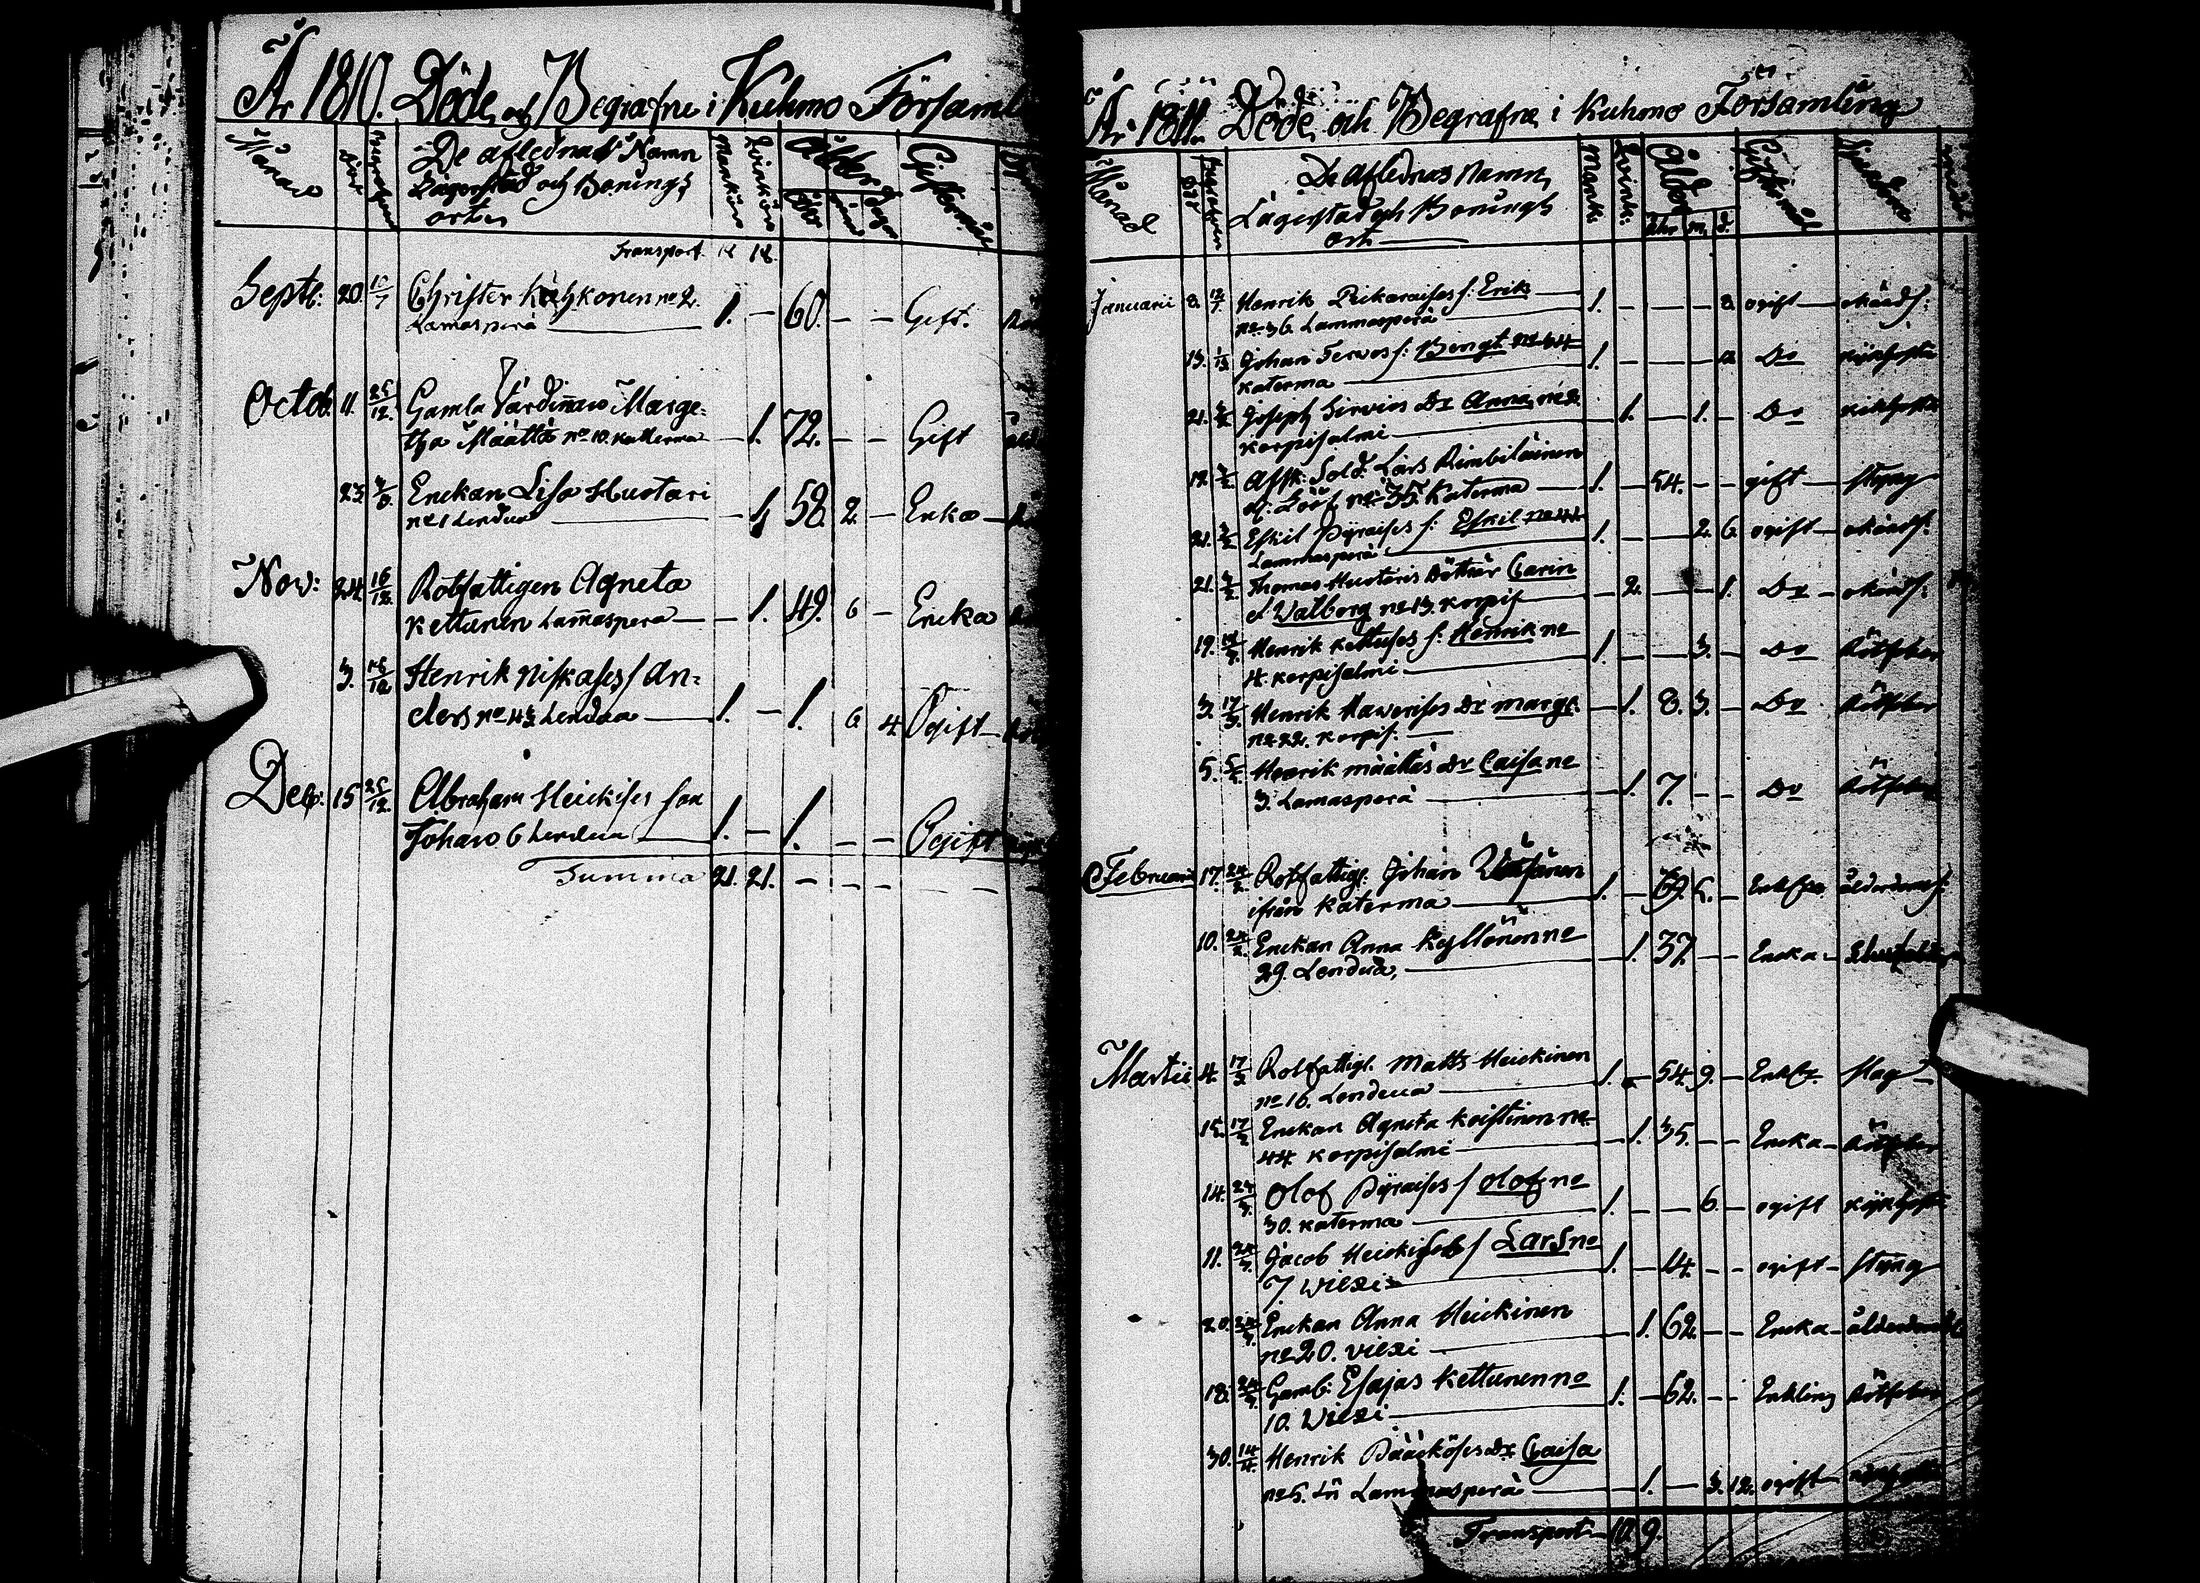 År 1810. Döde och Begrafne i Kuhmo Församl
Månad
De aflednas Namn
Lägerstad och Bonings
orten
Mankön
Qvinkön
Ålder
Giftermål
Transport 18 18.
Septb: 20. Christer Kähkonen no 2.
Lamasperä 1. — 60. — — Gift.
Octob. 11. 26/12. Gamla Värdinan Marge-
tha Määttä no 10. Katterma — 1. 72. — — Gift
23. Enckan Lisa Huotari
no 1 Lendua — 1. 58. 2 — Enka
Nov: 24. 16/12. Rotfattigen Agneta
Kettunen Lamaspera — 1. 49. 6 — Encka
3. 16/12 Henrik Niskases s. An-
ders no 43 Lendua 1. — 1. 6 4. Ogift
Decb: 15 26/12. Abraham Heickises son
Johan 6 Lendua 1. — 1. — — Ogift
Summa 21. 21. — — — — —
År 1811. Döde och Begrafne i Kuhmo Församling
Månad
De aflednas Namn,
Lägerstad och Bonings
ort
Mank:
Qvink:
Ålder
åhr m. d.
Giftermål
Januarii 8. Henrik Pikaraises s: Erik
no 36 Lammasperä 1. — — — 8. ogift — okänd s:
13. Johan Tervos s: Bengt no 34
Katerma 1. — — — Do
21. Joseph Sirvios Dr Anna, no 2.
Korpisalmi — 1. — 1. — Do
12. Afsk: Sold: Lars Rimbiläinen
no 35. Katerma 1. — 54. — — gift — styng
21. Eskil Pyyraises s: Eskil no 44
Lammasperä 1. — — 2. 6. ogift — okänd s.
21. Thomas Huotaris Döttrar Carin
et Walborg no 13. Korpis — 2. — — 1. Do — okänd s:
19. Henrik Kettuses s: Henrik no
4. Korpisalmi 1. — — 3. — Do Rötfeber
3. 17/3. Henrik Hawerises Dr Margr.
no 22. Korpis: — 1. 8. 3. — Do Rötfeber
5. Henrik Määttäs dr Caisa no
3. Lamasperä — 1. 7. — — Do Rötfeber
Februarii 17. 24/2. Rotfattigl. Johan Väisänen
ifrån Katerma 1. — 69. 6. — ålderdoms s:
10. 24/2. Enckan Anna Kyllönen no
29. Lendua, — 1. 37. — — Encka
Martii 4. 17/3. Rotfattigl. Matts Heickinen
no 16. Lendua 1. — 54. 9. — Slag
15. 17/3 Enckan Agneta Keistinen no
44 Korpisalmi — 1. 35. — — Encka — Rötfeber
14. 24/3. Olof Pyyraises s olof no
30. Katerma 1. — — 6. — ogift
11. 24/3. Jacob Heickises s Lars no
7 Wiexi 1. — 14. — — ogift — styng
20. 24/3. Enckan Anna Heickinen
no 20. Viexi 1. 62 — — Encka
18. 24/3. Gaml: Esajas Kettunen no
10. Wiexi 1. — 62. — — Enkling Rötfeber
30. 14/4. Henrik Pääkköses dr Caisa
no 5. Lammasperä — 1. — 3. 12. ogift
Transport 10. 9.